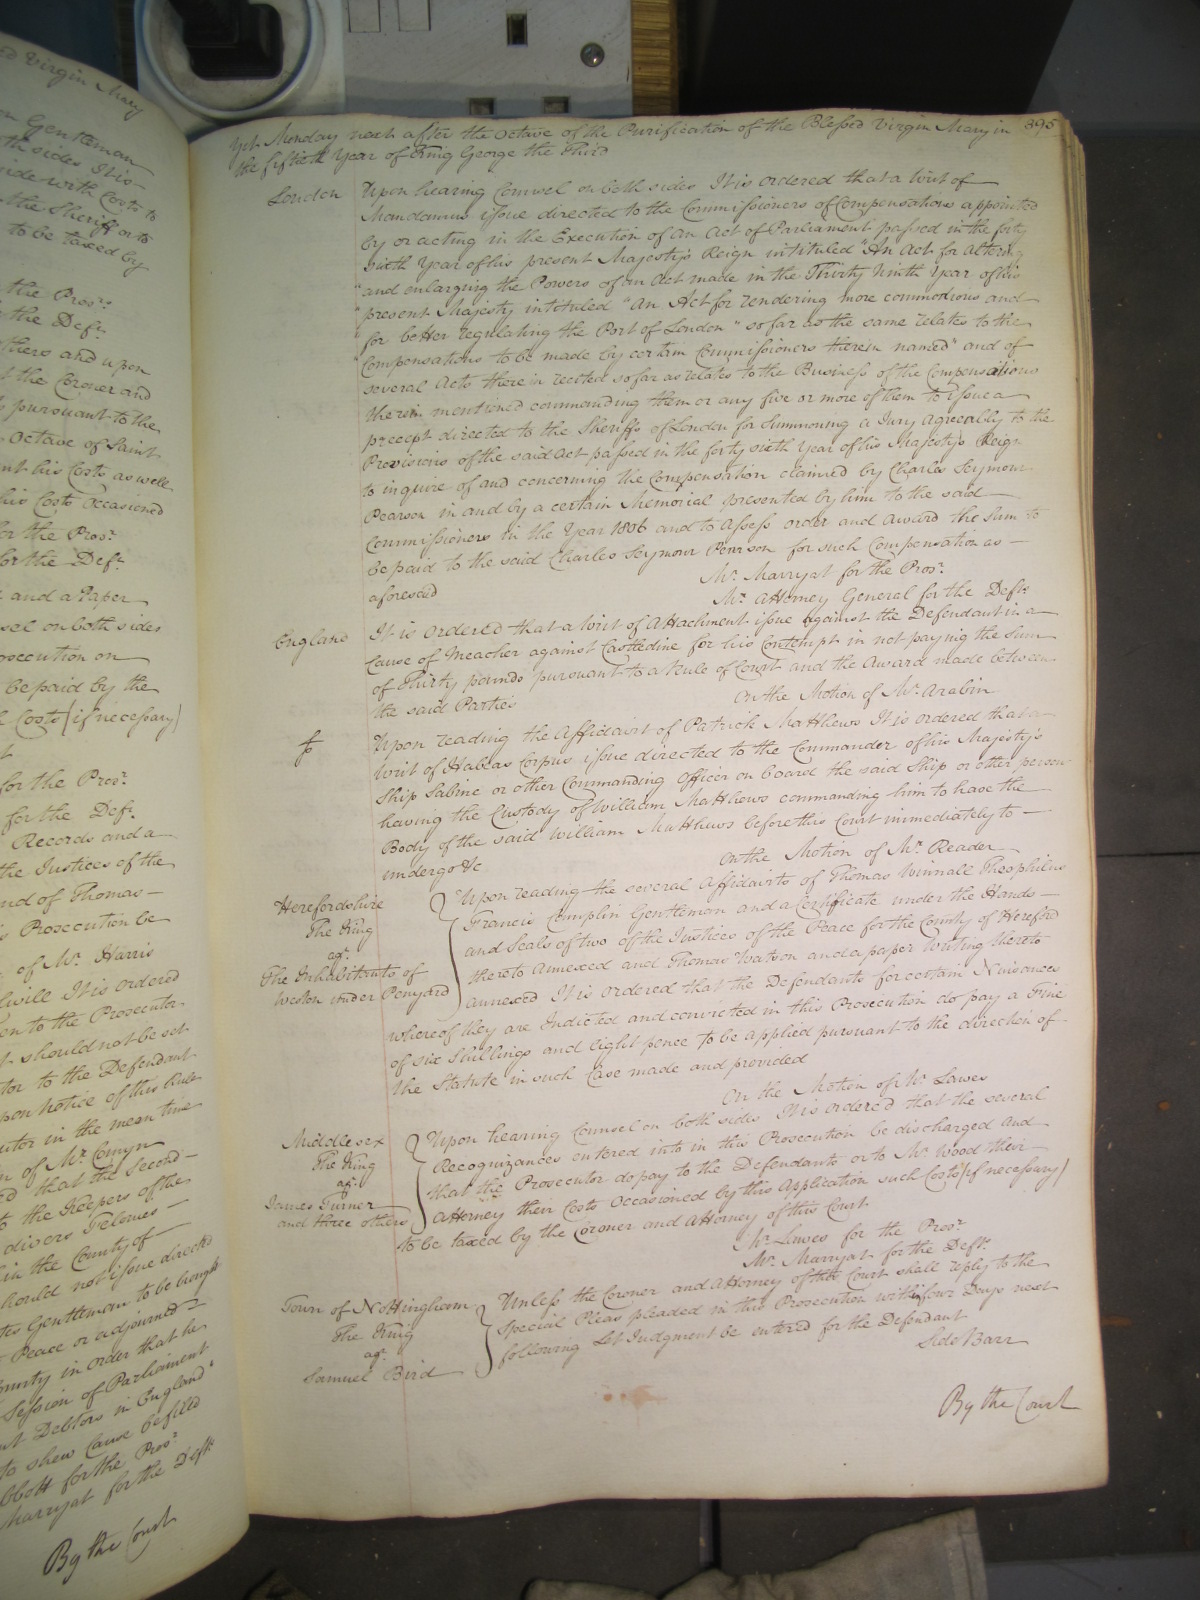 ed Virgin Mary
on Gentleman
th sides It is
side with Costs to
the Sheriff or to
to be taxed by
the Prosr.
the Deft.
thers and upon
t the Coroner and
pursuant to the
Octave of Saint
nt his Costs as well
his Costs Occasioned
or the Prosr.
for the Deft.
and a Paper
sel on both sides
rosecution on
be paid by the
Costs (if necessary)
for the Prosr.
for the Deft.
Records and a
the Justices of the
nd of Thomas
Prosecution be
of Mr. Harris
It is ordered
en to the Prosecutor
should not be set
tor to the Defendant
pon notice of this Rule
cutor in the mean time
n of Mr. Comyn
d that the Second
to the Keepers of the
divers Felonies
in the County of
should not issue directed
tes Gentleman to be brought
Peace or adjourned
ounty in order that he
Session of Parliament
nt Debtors in England"
to shew Cause be filed
bbott for the Prosr.
Marryat for the Deft.
By the Court
395
Yet Monday next after the Octave of the Purification of the Blessed Virgin Mary in
the fiftieth Year of King George the Third
London Upon hearing Counsel on both sides It is ordered that a Writ of
Mandamus issue directed to the Commissioners of Compensations appointed
by or acting in the Execution of an Act of Parliament passed in the forty
sixth Year of his present Majestys Reign intituled "An Act for altering
"and enlarging the Powers of an Act made in the Thirty Ninth Year of his
"present Majesty intituled "An Act for rendering more commodious and
for better regulating the Port of London" so far as the same relates to the
"Compensations to be made by certain Commissioners therein named" and of
several Acts therein recited so far as relates to the Business of the Compensations
therein mentioned commanding them or any five or more of them to issue a
precept directed to the Sheriffs of London for Summoning a Jury Agreeably to the
Provisions of the said Act passed in the forty sixth Year of his Majestys Reign
to inquire of and concerning the Compensation claimed by Charles Seymour
Pearson in and by a certain Memorial presented by him to the said
Commissioners in the Year 1806 and to Assess order and Award the Sum to
be paid to the said Charles Seymour Pearson for such Compensation as
aforesaid
Mr. Marryat for the Prosr.
Mr. Attorney General for the Defts.
England It is ordered that a Writ of Attachment issue against the Defendant in a
Cause of Meacher against Castledine for his Contempt in not paying the Sum
of Thirty pounds pursuant to a Rule of Court and the Award made between
the said Parties
On the Motion of Mr. Arabin
Upon reading the Affidavit of Patrick Matthews It is ordered that a
Writ of Habeas Corpus issue directed to the Commander of his Majesty's
Ship Sabine or other Commanding Officer on board the said Ship or other person
having the Custody of William Matthews commanding him to have the
Body of the said William Matthews before this Court immediately to
undergo &c
On the Motion of Mr. Reader
Herefordshire
The King
agt.
The Inhabitants of
Weston under Penyard
Upon reading the several Affidavits of Thomas Winnale Theophilus
Francis Complin Gentleman and a Certificate under the Hands
and Seals of two of the Justices of the Peace for the County of Hereford
thereto Annexed and Thomas Watson and a paper Writing thereto
annexed It is ordered that the Defendants for certain Nuisances
whereof they are Indicted and convicted in this Prosecution do pay a Fine
of six Shillings and Eight pence to be applied pursuant to the direction of
the Statute in such Case made and provided
On the Motion of Mr. Lawes
Middlesex
The King
agt.
James Turner
and three others
Upon hearing Counsel on both sides It is ordered that the several
Recognizances entered into in this Prosecution be discharged And
that the Prosecutor do pay to the Defendants or to Mr. Wood their
Attorney their Costs Occasioned by this Application such Costs (if necessary)
to be taxed by the Coroner and Attorney of this Court.
Mr. Lawes for the Prosr.
Mr. Marryat for the Defts.
Town of Nottingham
The King
agt.
Samuel Bird
Unless the Coroner and Attorney of this Court shall reply to the
Special Pleas pleaded in this Prosecution within four Days next
following Let Judgment be entered for the Defendant
Side Barr
By the Court